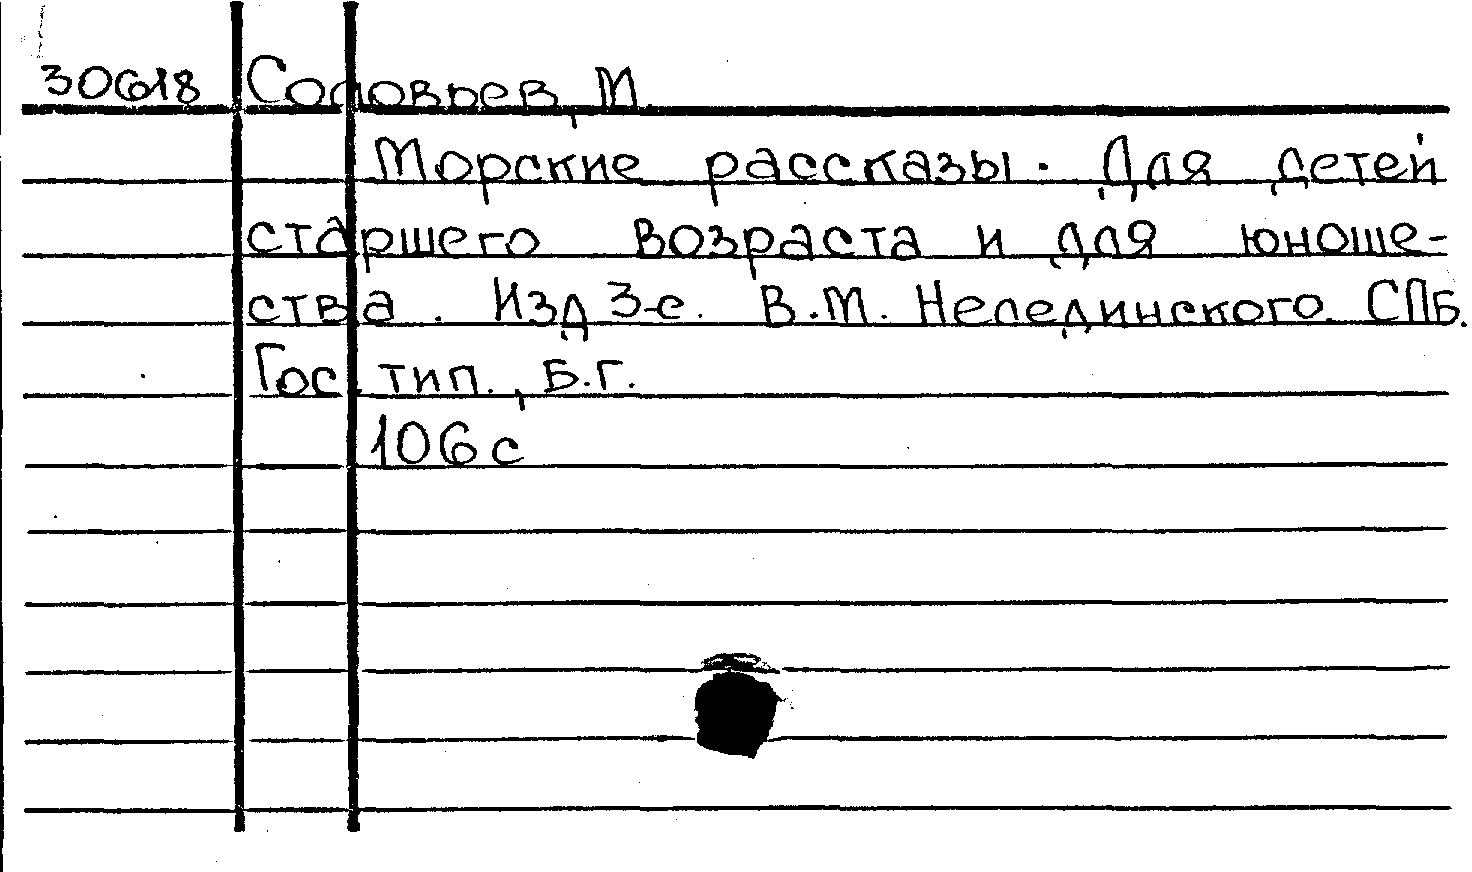 30618 Соловьев, М.
Морские рассказы. Для детей
старшего возраста и для юноше-
ства. Изд 3-е. В.М. Нелединского. СПб.
Гос. тип., Б.г.
106 с